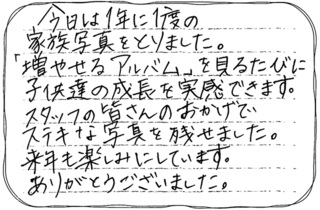 今日は1年に1度の
家族写真をとりました。
「増やせるアルバム」を見るたびに
子供達の成長を実感できます。
スタッフの皆さんのおかげで
ステキな写真を残せました。
来年も楽しみにしています。
ありがとうございました。